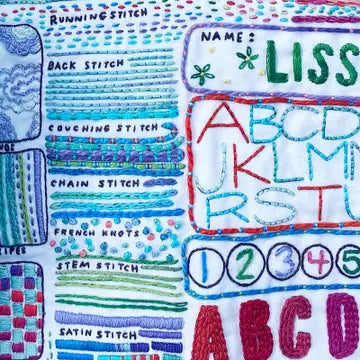 RUNNING STITCH
BACK STITCH
COUCHING STITCH
CHAIN STITCH
FRENCH KNOTS
STEM STITCH
SATIN STITCH
NAME:
LISS
ABCD
JKLM
RSTU
12345
ABCD